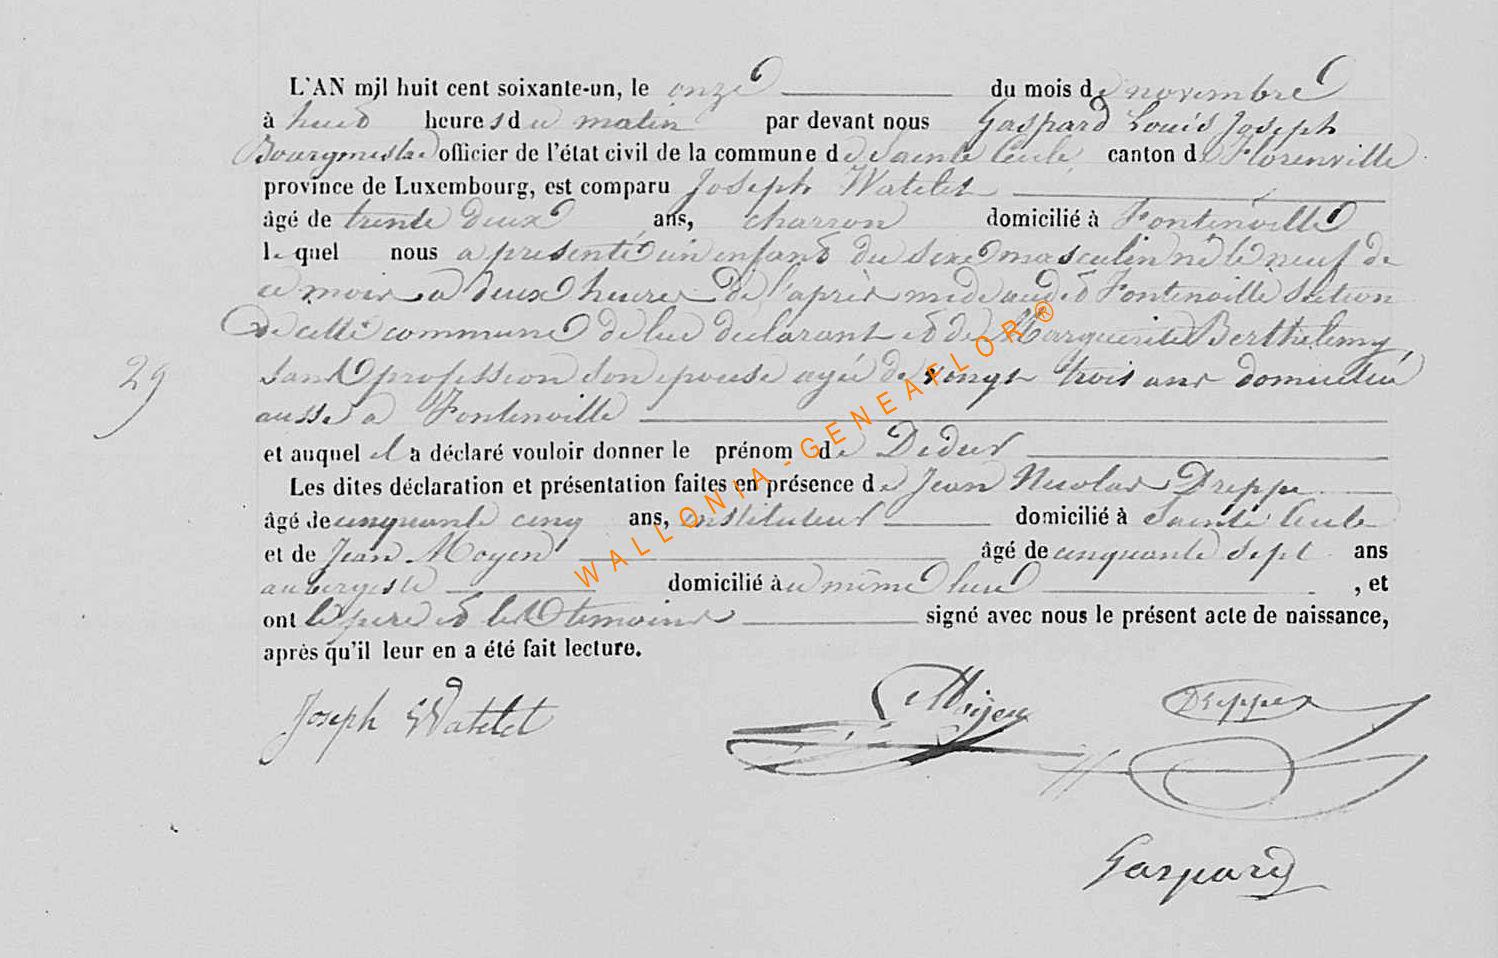 L'AN mil huit cent soixante-un, le onze du mois de novembre
à huit heures du matin par devant nous Gaspard Louis Joseph
Bourgmestre officier de l'état civil de la commune de Sainte Cecile canton de Florenville
province de Luxembourg, est comparu Joseph Watelet
âgé de trente deux ans, charron domicilié à Fontenoille
lequel nous a présenté un enfant du sexe masculin né le neuf de
ce mois a deux heures de l'après midi audit Fontenoille section
de cette commune de lui declarant et de Marguerite Berthelemy
29
sans profession son epouse agée de vingt trois ans domiciliée
aussi a Fontenoille
et auquel il a déclaré vouloir donner le prénom de Didier
Les dites déclaration et présentation faites en présence de Jean Nicolas Dreppe
âgé de cinquante cinq ans, instituteur domicilié à Sainte Cecile
et de Jean Moyen âgé de cinquante sept ans
aubergiste domicilié au même lieu , et
ont le pere et les temoins signé avec nous le présent acte de naissance,
après qu'il leur en a été fait lecture.
Joseph Watelet Dreppe
Gaspard
WALLONIA-GENEAFLOR®